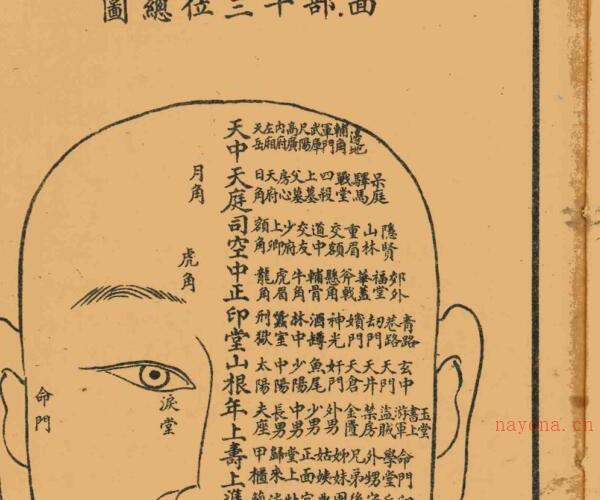 面部十三位總圖
天中天庭司空中正印堂山根年上壽上準
天岳 左廂 內府 高廣 尺陽 武庫 軍門 輔角 邊地
日角 天府 房心 父墓 上墓 四殺 戰堂 驛馬 呆庭
額角 上卿 少府 交友 道中 交額 重眉 山林 隱賢
龍角 虎眉 牛角 輔骨 懸角 斧戟 華蓋 福堂 郊外
刑獄 蠶室 林中 酒樽 神光 嬪門 劫門 巷路 青路
太陽 中陽 少陽 魚尾 奸門 天倉 天井 天門 玄中
夫座 長男 中男 少男 外男 金匱 禁房 盜賊 游軍 書上 玉堂
甲櫃 歸來 堂上 正面 姑姨 姊妹 兄弟 外甥 學堂 命門
月角
虎角
淚堂
命門
nayona.cn